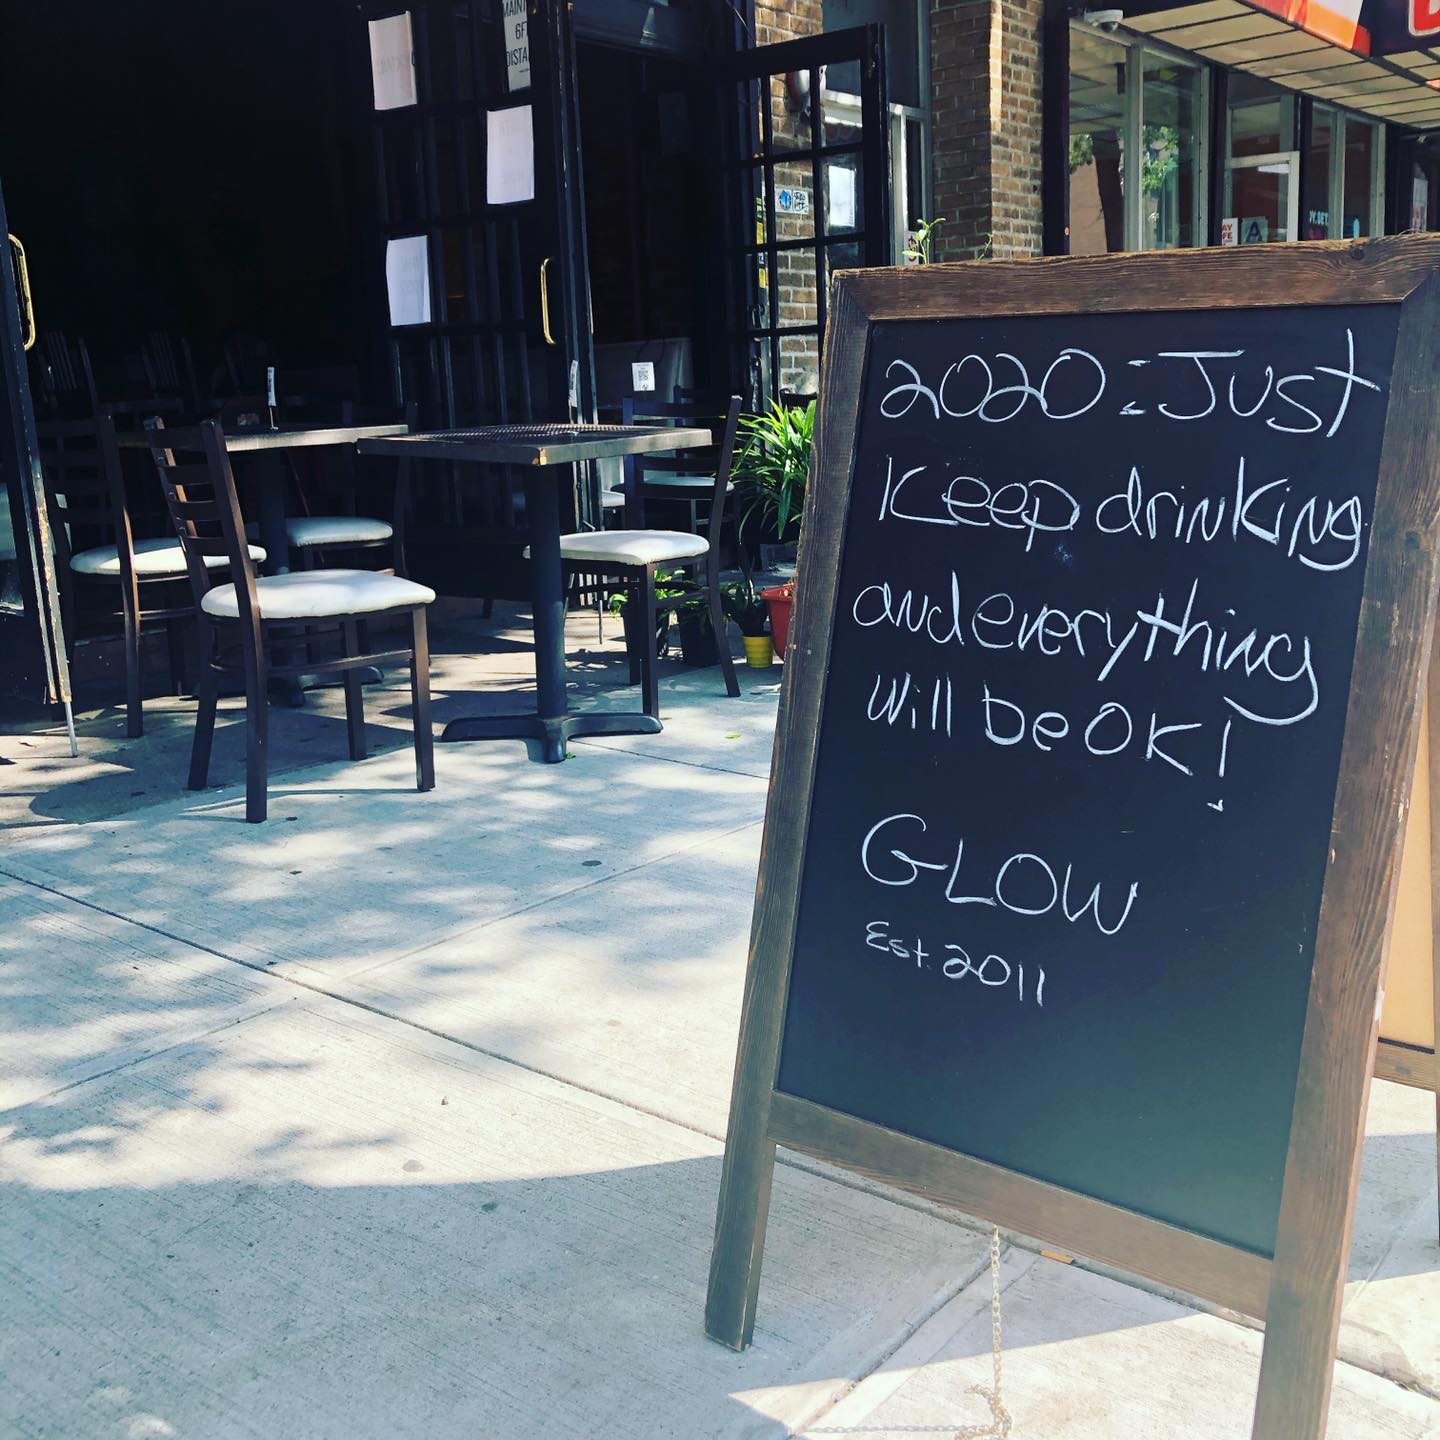 MAINT
6FT
DISTA
2020: Just
Keep drinking
and everything
will be OK!
GLOW
Est. 2011
A